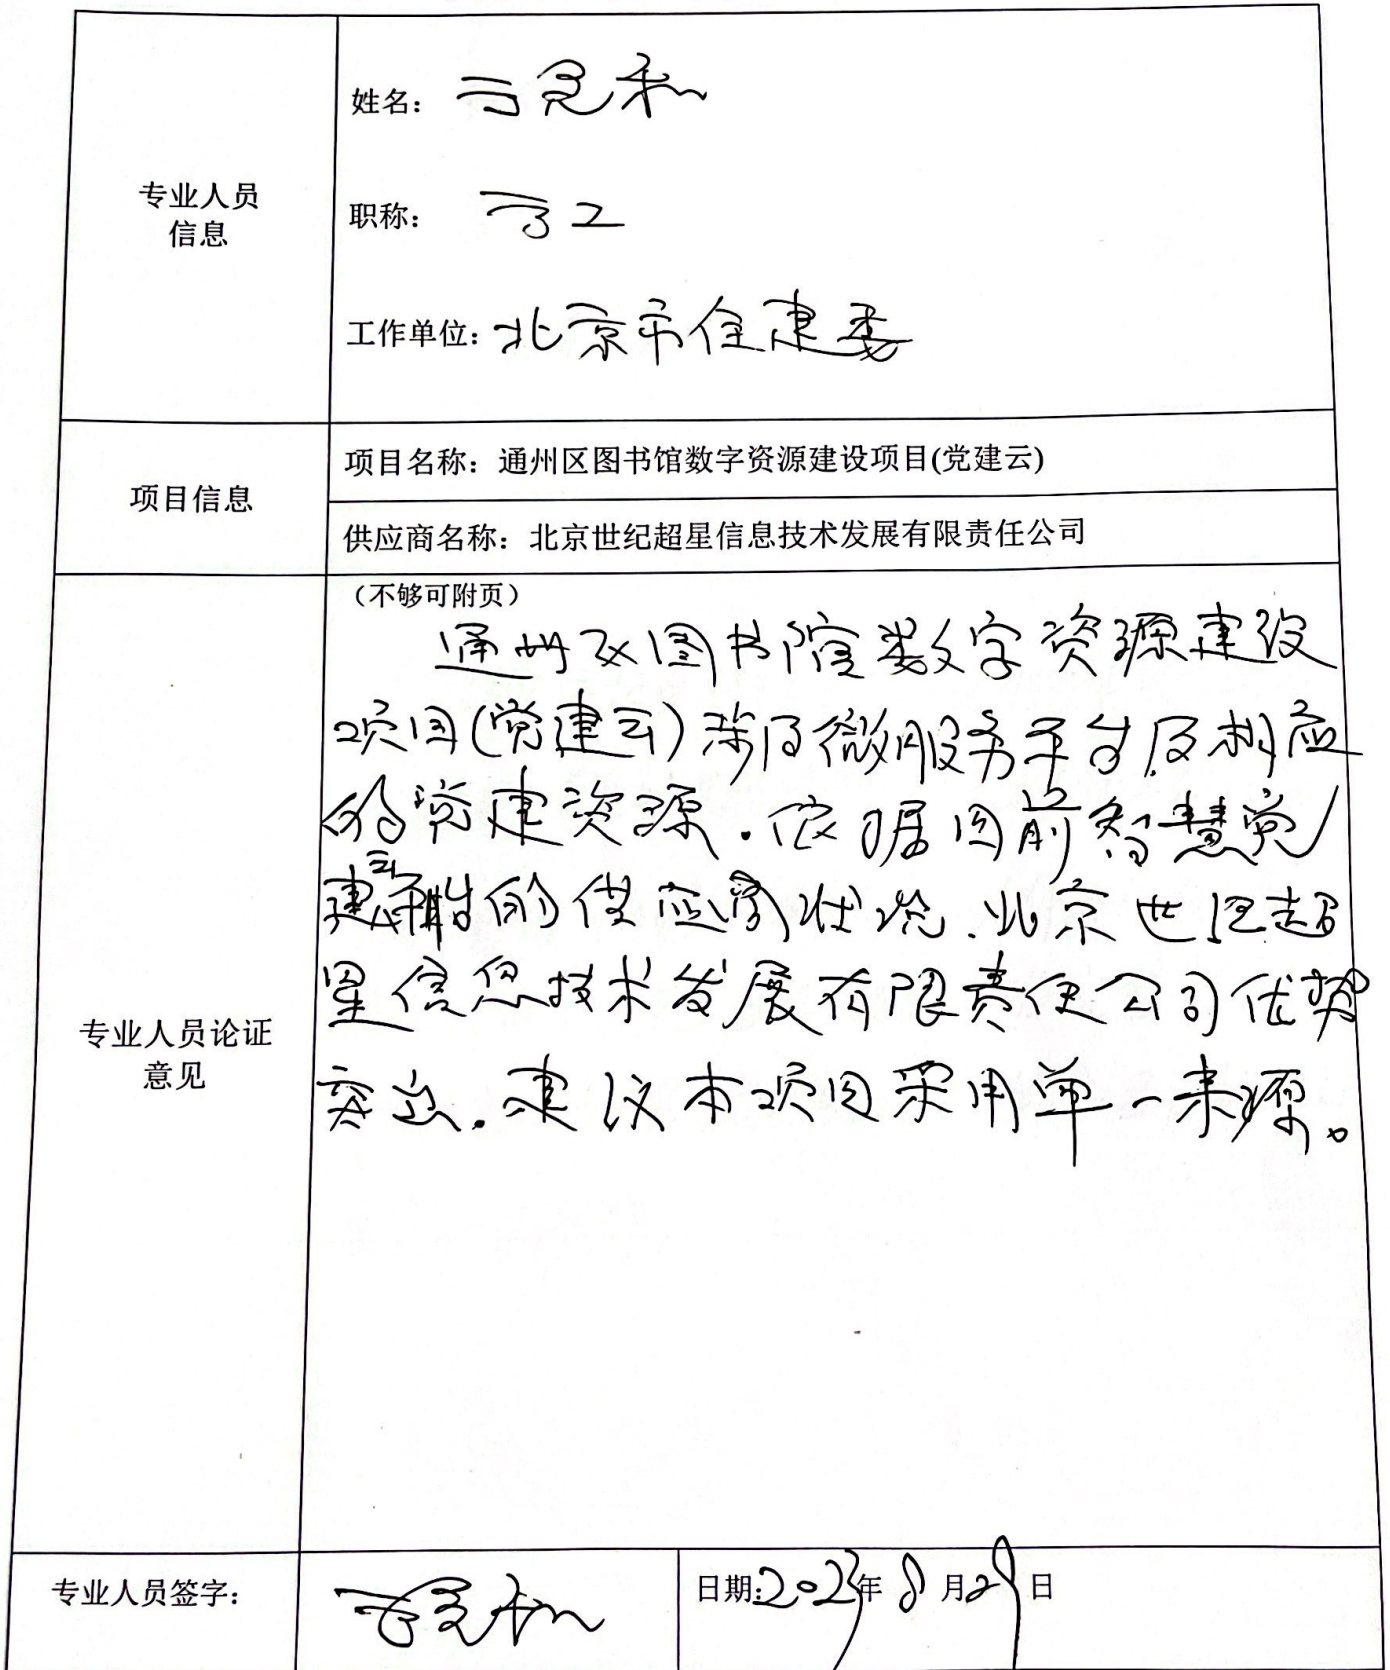 专业人员
信息
姓名：
职称： 高工
工作单位：北京市住建委
项目信息
项目名称：通州区图书馆数字资源建设项目(党建云)
供应商名称：北京世纪超星信息技术发展有限责任公司
专业人员论证
意见
（不够可附页）
通州区图书馆数字资源建设
项目(党建云)涉及微服务平台及相应
的党建资源.依据目前智慧党
建的供应商状况.北京世纪超
星信息技术发展有限责任公司优势
突出.建议本项目采用单一来源。
专业人员签字：
日期:2023年8月29日